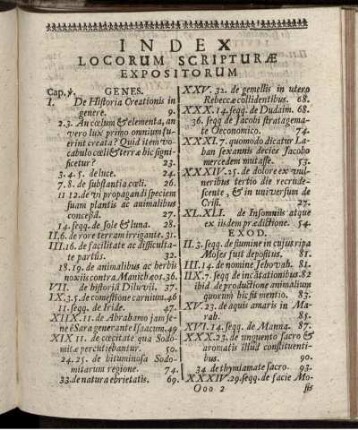 INDEX
LOCORUM SCRIPTURÆ
EXPOSITORUM
Cap. ℣. GENES.
I. De Historia Creationis in
genere. 9.
2.3. An cœlum & elementa, an
verò lux primo omnium fu-
erint creata? Quid item vo-
cabulo cœli & terræ hic signi-
ficetur? 23.
3.4.5. de luce. 24.
7.8. de substantia cœli. 26.
11.12. de vi propagandi speciem
suam plantis ac animalibus
concessa. 27.
14. seqq. de Sole & luna. 28.
II.6. de rore terram irrigante. 31.
III.16. de facilitate ac difficulta-
te partûs. 32.
18.19. de animalibus ac herbis
noxiis contra Manichæos. 36.
VII. de historia Diluvii. 37.
IX.3.5. de comestione carnium. 46
11. seqq. de Iride. 47.
XIIX.11. de Abrahamo jam se-
ne & Sara generante Isaacum. 49
XIX 11. de cœcitate qua Sodo-
mitæ percutiebantur. 50.
24.25. de bituminosa Sodo-
mitarum regione. 74.
33. de natura ebrietatis. 69.
XXV. 22. de gemellis in utero
Rebeccæ collidentibus. 68.
XXX.14. seqq. de Dudaim. 68.
36. seqq. de Jacobi stratagema-
te Oeconomico. 74.
XXXI.7. quomodo dicatur La-
ban sexannis decies Jacobo
mercedem mutasse. 53.
XXXIV.25. de dolore ex vul-
neribus tertio die recrude-
scente, & in universum de
Crisi. 27.
XL.XLI. de Insomniis atque
ex iisdem prædictione. 54.
EXOD.
II.3. seqq. de flumine in cujus ripa
Moses fuit depositus. 81.
III.14. de nomine Jehovah. 81.
IIX.7. seqq. de incātationibus. 82
ibid. de productione animalium
quorum hic fit mentio. 83.
XV.23. de aquis amaris in Ma-
rah. 85.
XVI.14. seqq. de Manna. 87.
XXX.23. de unguento sacro &
aromatis illud constituenti-
bus. 90.
34. de thymiamate sacro. 93.
XXXIV.29. seqq. de facie Mo-
Ooo 2 sis